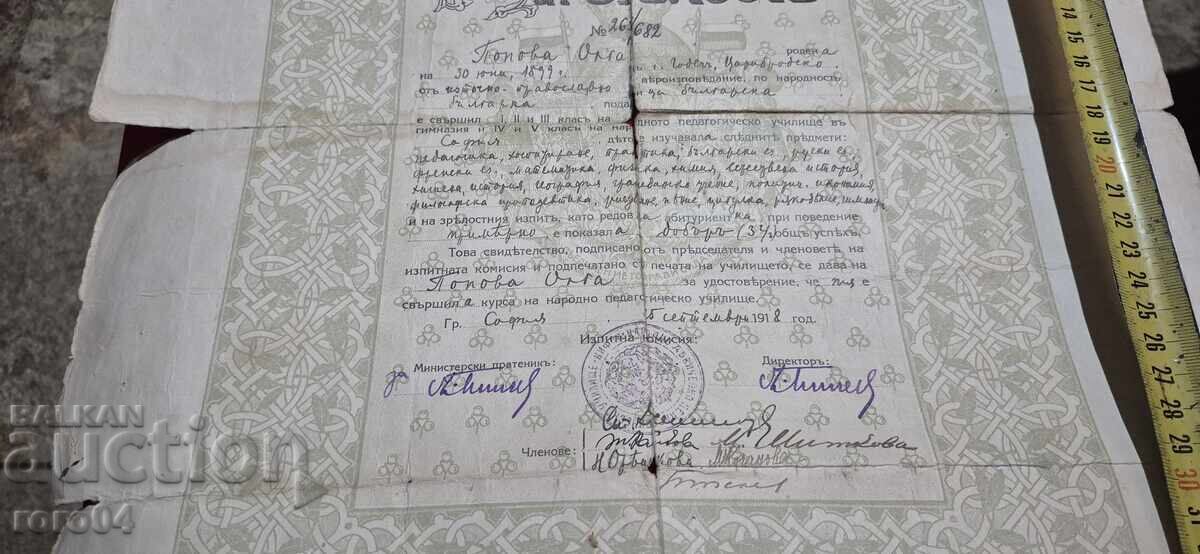 № 26/682
Попова Олга родена
на 30 юни, 1899 г. Годечъ, Царибродско
отъ източно-православно вѣроизповѣдание, по народность
българка пода ца българска
е свършила I, II и III класъ на дното педагогическо училище въ
гимназия и IV и V класи на нар
София дѣто е изучавала слѣднитѣ предмети:
педагогика, хоспитиране, практика, български ез., руски ез.,
френски ез., математика, физика, химия, естествена история,
хигиена, история, география, гражданско учение, политич. икономия,
философска пропедевтика, рисуване, пѣние, цигулка, рѫкодѣлие,
и на зрѣлостния изпитъ, като редовна абитуриентка, при поведение
примѣрно, е показала добъръ (3½) общъ успѣхъ.
Това свидѣтелство, подписано отъ председателя и членоветѣ на
изпитната комисия и подпечатано съ печата на училището, се дава на
Попова Олга за удостовѣрение, че тя е
свършила курса на народно педагогическо училище.
Гр. София 5 септемврий 1918 год.
Изпитна комисия:
Министерски пратеникъ: Директоръ:
Членове:
BALKAN
auction
roro04
14 15 16 17 18 19 20 21 22 23 24 25 26 27 28 29 30 31